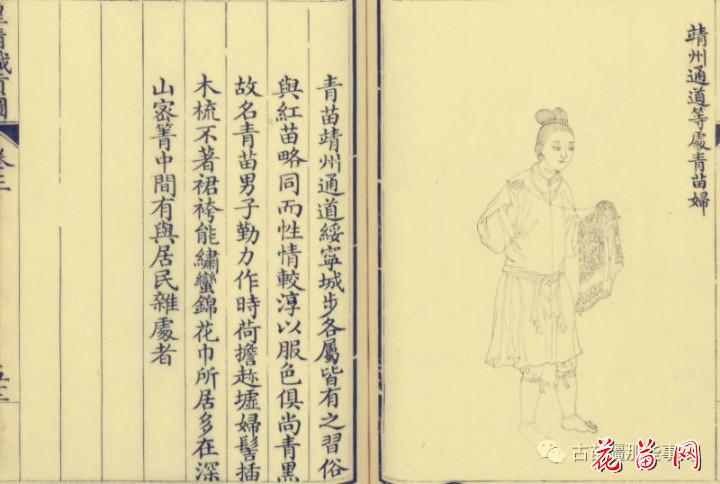 靖州通道等處青苗婦
青苗靖州通道綏寧城步各屬皆有之習俗
與紅苗略同而性情較淳以服色俱尚青黑
故名青苗男子勤力作時荷擔趂墟婦髻插
木梳不著裙袴能繡蠻錦花巾所居多在深
山密箐中間有與居民雜處者
皇清職貢圖
卷三
古苗疆那些事
花苗网